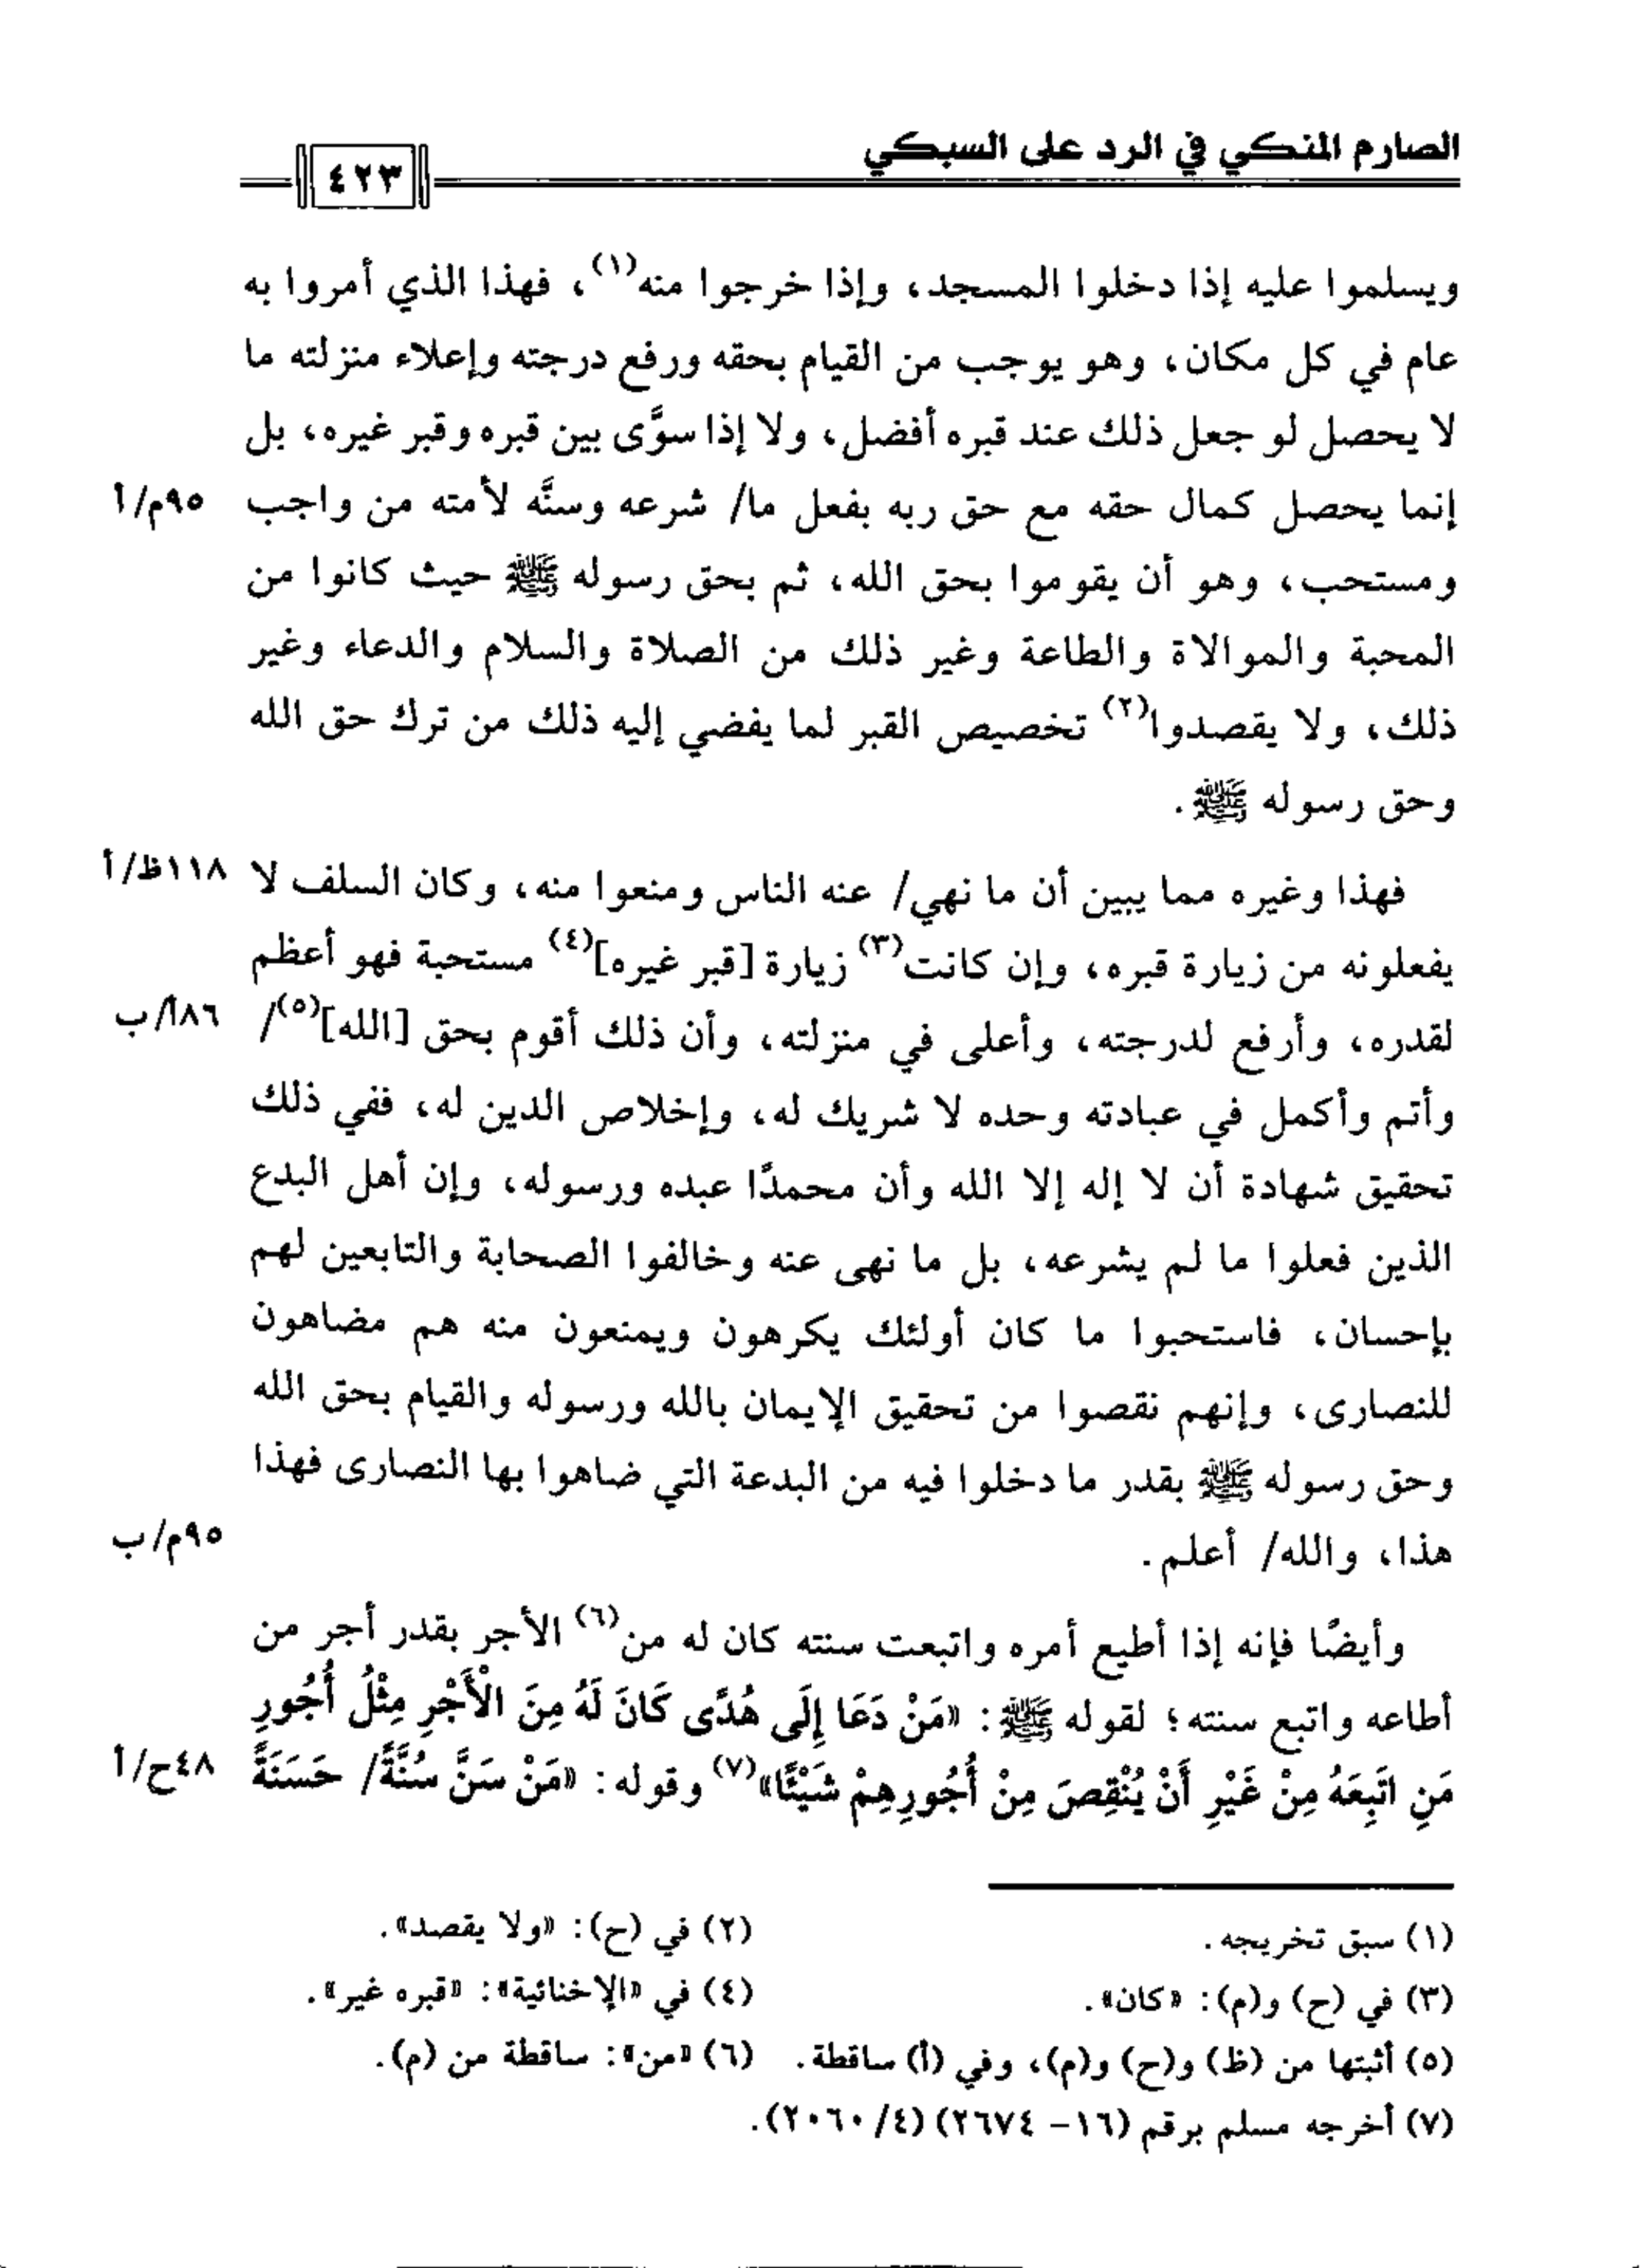 الصارم المنكي في الرد على السبكي
٤٢٣
ويسلموا عليه إذا دخلوا المسجد، وإذا خرجوا منه(١)، فهذا الذي أمروا به
عام في كل مكان، وهو يوجب من القيام بحقه ورفع درجته وإعلاء منزلته ما
لا يحصل لو جعل ذلك عند قبره أفضل، ولا إذا سوَّى بين قبره وقبر غيره، بل
إنما يحصل كمال حقه مع حق ربه بفعل ما/ شرعه وسنَّه لأمته من واجب
٩٥م/أ
ومستحب، وهو أن يقوموا بحق الله، ثم بحق رسوله ﷺ حيث كانوا من
المحبة والموالاة والطاعة وغير ذلك من الصلاة والسلام والدعاء وغير
ذلك، ولا يقصدوا(٢) تخصيص القبر لما يفضي إليه ذلك من ترك حق الله
وحق رسوله ﷺ.
فهذا وغيره مما يبين أن ما نهي/ عنه الناس ومنعوا منه، وكان السلف لا
١١٨ظ/أ
يفعلونه من زيارة قبره، وإن كانت(٣) زيارة [قبر غيره](٤) مستحبة فهو أعظم
لقدره، وأرفع لدرجته، وأعلى في منزلته، وأن ذلك أقوم بحق [الله](٥)/
٨٦أ/ب
وأتم وأكمل في عبادته وحده لا شريك له، وإخلاص الدين له، ففي ذلك
تحقيق شهادة أن لا إله إلا الله وأن محمدًا عبده ورسوله، وإن أهل البدع
الذين فعلوا ما لم يشرعه، بل ما نهى عنه وخالفوا الصحابة والتابعين لهم
بإحسان، فاستحبوا ما كان أولئك يكرهون ويمنعون منه هم مضاهون
للنصارى، وإنهم نقصوا من تحقيق الإيمان بالله ورسوله والقيام بحق الله
وحق رسوله ﷺ بقدر ما دخلوا فيه من البدعة التي ضاهوا بها النصارى فهذا
هذا، والله/ أعلم.
٩٥م/ب
وأيضًا فإنه إذا أطيع أمره واتبعت سنته كان له من(٦) الأجر بقدر أجر من
أطاعه واتبع سنته؛ لقوله ﷺ: «مَنْ دَعَا إِلَى هُدًى كَانَ لَهُ مِنَ الْأَجْرِ مِثْلُ أُجُورِ
مَنِ اتَبِعَهُ مِنْ غَيْرِ أَنْ يُنْقِصَ مِنْ أُجُورِهِمْ شَيْئًا»(٧) وقوله: «مَنْ سَنَّ سُنَّةً/ حَسَنَةً
٤٨ح/أ
(١) سبق تخريجه.
(٢) في (ح): «ولا يقصد».
(٣) في (ح) و(م): «كان».
(٤) في «الإخنائية»: «قبره غير».
(٥) أثبتها من (ظ) و(ح) و(م)، وفي (أ) ساقطة.
(٦) «من»: ساقطة من (م).
(٧) أخرجه مسلم برقم (١٦- ٢٦٧٤) (٤/ ٢٠٦٠).